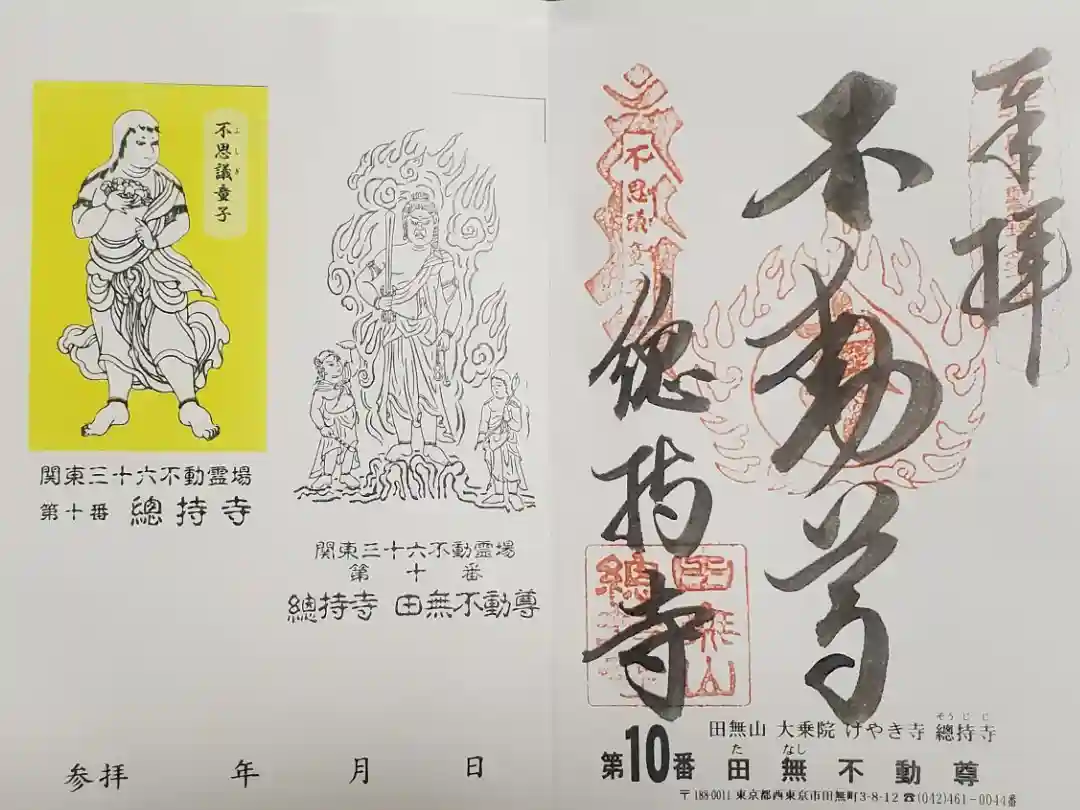 奉拝
不動尊
總持寺
不思議童
田無山
總持寺
田無山 大乗院 けやき寺 總持寺
そうじじ
第10番 田無不動尊
た なし
〒188-0011 東京都西東京市田無町3-8-12 ☎(042)461-0044番
不思議童子
ふしぎ
関東三十六不動霊場
第十番 總持寺
関東三十六不動霊場
第十番
總持寺 田無不動尊
参拝 年 月 日